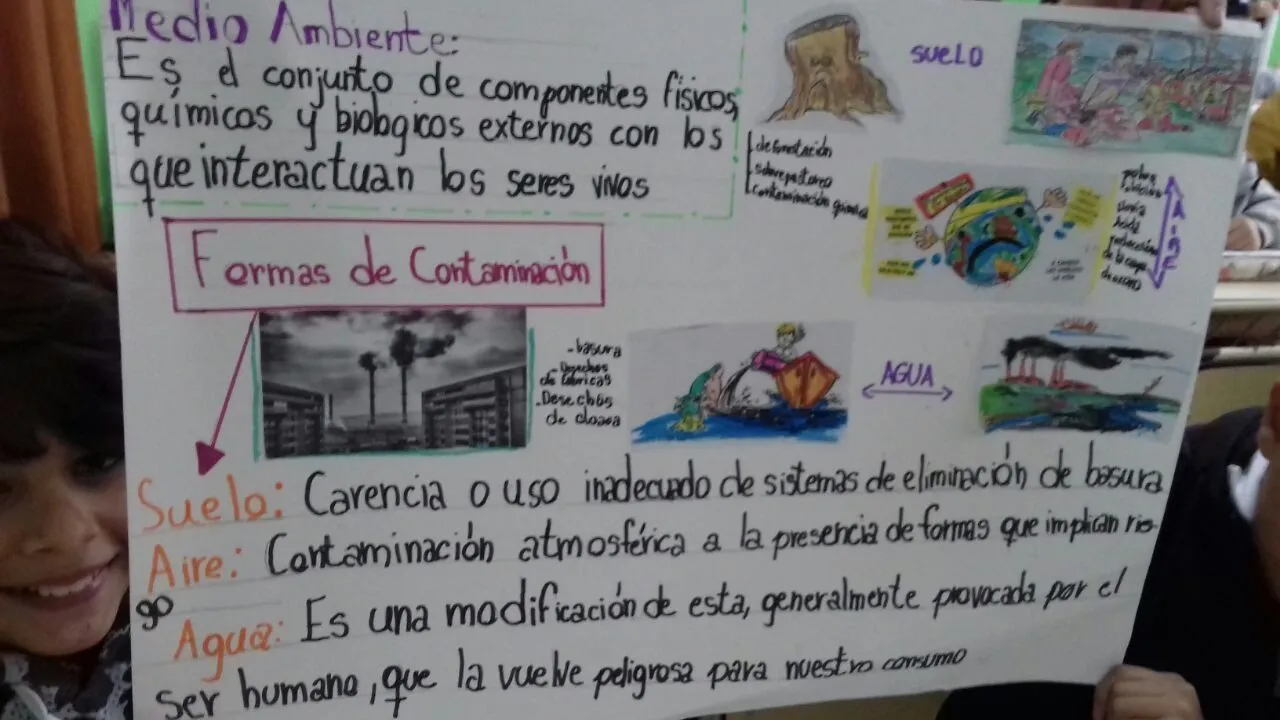 Medio Ambiente:
Es el conjunto de componentes fisicos,
químicos y biologicos externos con los
que interactuan los seres vivos
SUELO
deforestación
sobrepastoreo
contaminación quimica
Formas de Contaminación
lluvia
Acida
de la capa
de ozono
-basura
-Desechos
de fabricas
-Desechos
de cloaca
AGUA
Suelo: Carencia o uso inadecuado de sistemas de eliminación de basura
Aire: Contaminación atmosférica a la presencia de formas que implican ries-
go
Agua: Es una modificación de esta, generalmente provocada por el
ser humano, que la vuelve peligrosa para nuestro consumo